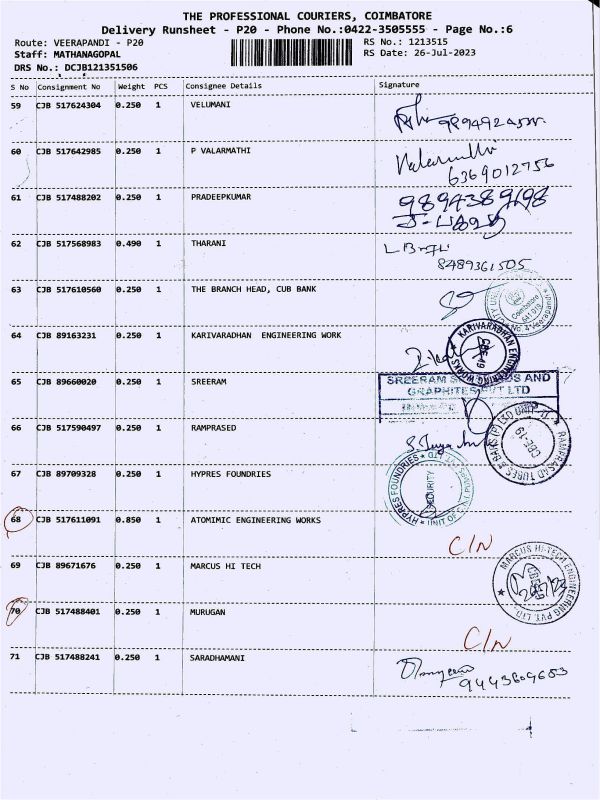 THE PROFESSIONAL COURIERS, COIMBATORE
Delivery Runsheet - P20 - Phone No.:0422-3505555 - Page No.:6
Route: VEERAPANDI - P20 RS No.: 1213515
Staff: MATHANAGOPAL RS Date: 26-Jul-2023
DRS No.: DCJB121351506
S No Consignment No Weight PCS Consignee Details Signature
59 CJB 517624304 0.250 1 VELUMANI
60 CJB 517642985 0.250 1 P VALARMATHI Valarmathi
6369012756
61 CJB 517488202 0.250 1 PRADEEPKUMAR 9894389698
62 CJB 517568983 0.490 1 THARANI
8489361505
63 CJB 517610560 0.250 1 THE BRANCH HEAD, CUB BANK
Coimbatore
64 CJB 89163231 0.250 1 KARIVARADHAN ENGINEERING WORK
KARIVARADHAN ENGINEERING WORKS CBE-19
65 CJB 89660020 0.250 1 SREERAM
SREERAM AND
GRAPHITES PVT LTD
66 CJB 517590497 0.250 1 RAMPRASED
RAMPRASAD TUBES & BARS (P) LTD UNIT-II CBE-19
67 CJB 89709328 0.250 1 HYPRES FOUNDRIES
HYPRES FOUNDRIES SECURITY
68 CJB 517611091 0.850 1 ATOMIMIC ENGINEERING WORKS
C/N
69 CJB 89671676 0.250 1 MARCUS HI TECH
MARCUS HI-TECH ENGINEERING PVT. LTD.
70 CJB 517488401 0.250 1 MURUGAN
C/N
71 CJB 517488241 0.250 1 SARADHAMANI
9443609653